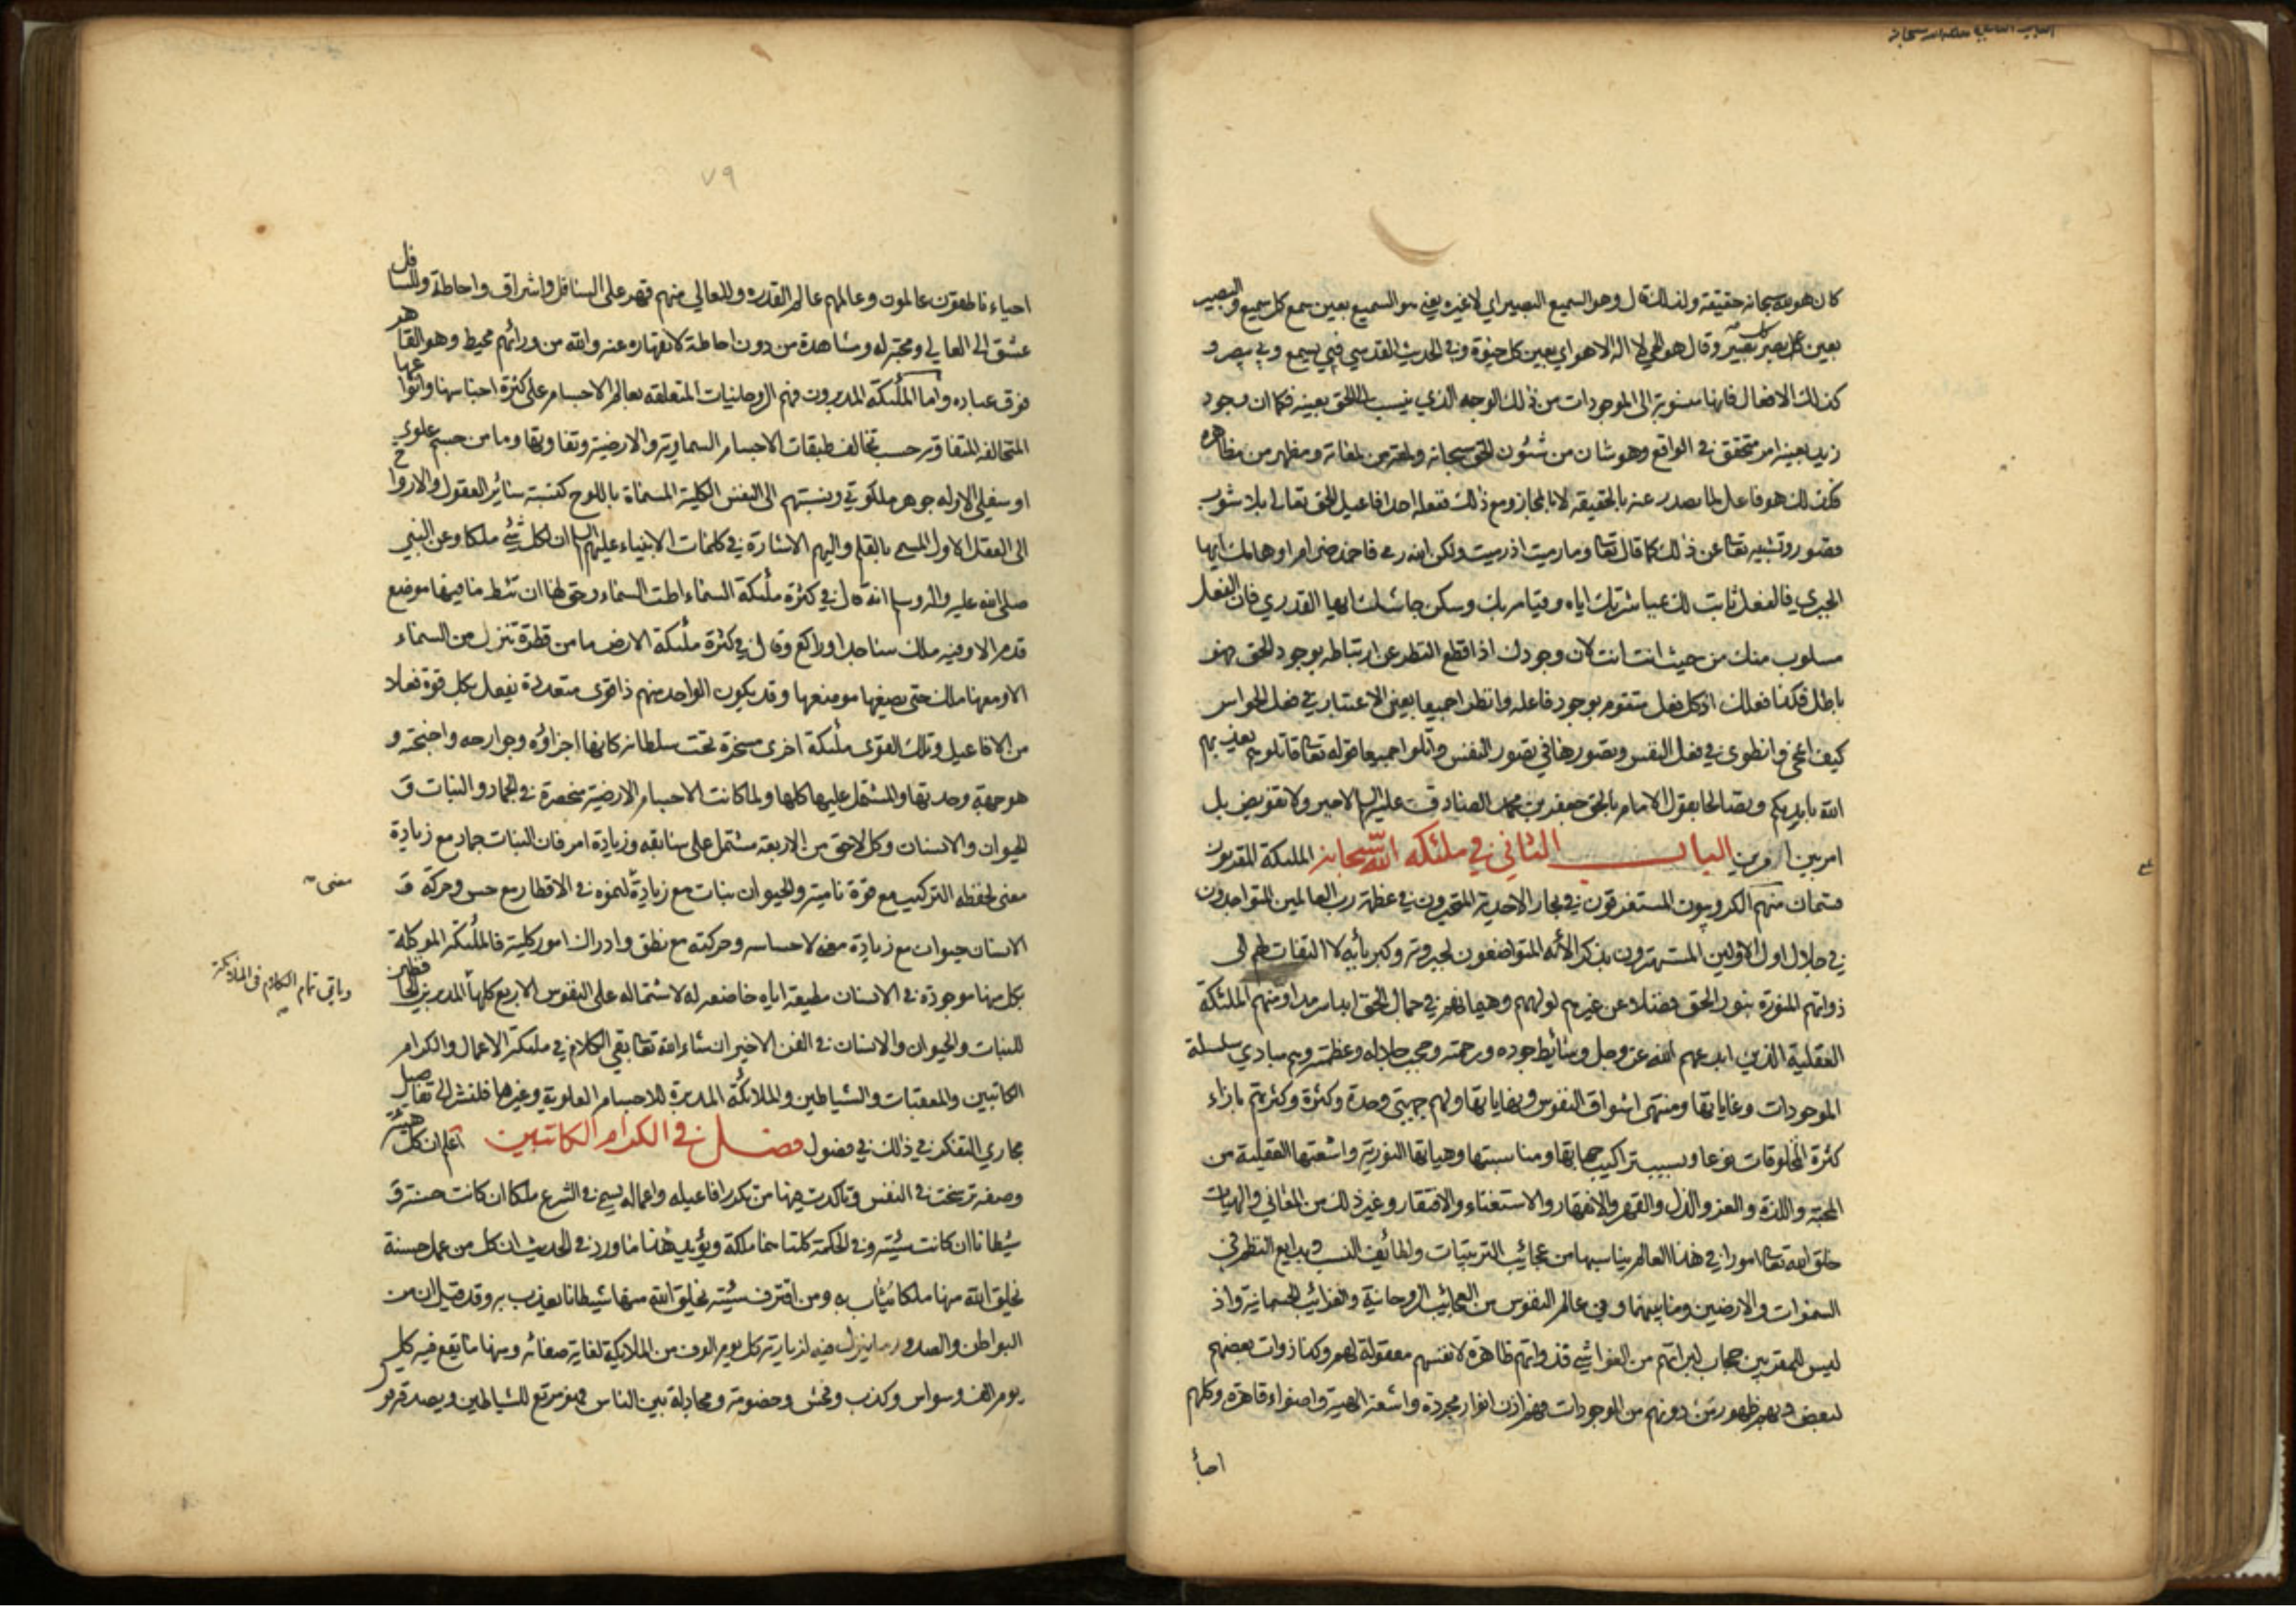 الباب الثاني ملئكة الله سبحانه
كان هويته سبحانه حقيقة ولذلك قال وهو السميع البصير اي لا غيره يعني هو السميع بعين سمع كل سميع والبصير
بعين كل بصر كل بصير وقال هو الحي لا اله الا هو اي بعين كل حيوة وفي الحديث القدسي فبي يسمع وبي يبصر و
كذلك الافعال فانها منسوبة الى الموجودات من ذلك الوجه الذي ينسب الى الحق بعينه فكما ان وجود
زيد بعينه امر متحقق في الواقع وهو شان من شئون الحق سبحانه ولمعة من لمعاته ومظهر من مظاهره
فكذلك هو فاعل لما يصدر عنه بالحقيقة لا بالمجاز ومع ذلك ففعله احد افاعيل الحق تعالى بلا شوب
قصور وتشبيه تعالى عن ذلك كما قال تعالى وما رميت اذ رميت ولكن الله رمى فاحمد ضرام اوهامك ايها
الجبري فالفعل ثابت لك بمباشرتك اياه وقيامه بك وسكن جاشك ايها القدري فان الفعل
مسلوب منك من حيث انت انت لان وجودك اذا قطع النظر عن ارتباطه بوجود الحق فهو
باطل فكذا فعلك اذ كل فعل متقوم بوجود فاعله وانظرا جميعا بعين الاعتبار في فعل الحواس
كيف انمحى وانطوى في فعل النفس وتصورها في تصور النفس واتلوا جميعا قوله تعالى قاتلوهم يعذبهم
الله بايديكم وتصالحا بقول الامام بالحق جعفر بن محمد الصادق عليه السلام لا جبر ولا تفويض بل
امر بين امرين الباب الثاني في ملئكة الله سبحانه الملئكة المقربون
قسمان منهم الكروبيون المستغرقون في بحار الاحدية المتحيرون في عظمة رب العالمين المتواجدون
في جلال اول الاولين المستهترون بذكر الائه المتواضعون لجبروته وكبريائه لا التفات لهم الى
ذواتهم المنورة بنور الحق فضلا عن غيرهم لولههم وهيمانهم في جمال الحق ابدا سرمدا ومنهم الملئكة
العقلية الذين ابدعهم الله عز وجل وسائط جوده ورحمته وحجب جلاله وعظمته وهم مبادي سلسلة
الموجودات وغاياتها ومنتهى اشواق النفوس ونهاياتها ولهم جهتي وحدة وكثرة وكثرتهم بازاء
كثرة المخلوقات نوعا وبسبب تراكيب جهاتها ومناسبتها وهياتها النورية واشعتها العقلية من
المحبة واللذة والعز والذل والقهر والانقهار والاستغناء والافتقار وغير ذلك من المعاني والهيات
خلق الله تعالى امورا في هذا العالم يناسبها من عجائب الترتيبات ولطائف النسب وبدايع النظم في
السموات والارضين وما بينهما وفي عالم النفوس من العجائب الروحانية والغرائب الجسمانية واذ
ليس للمقربين حجاب لبرائتهم من الغواشي فذواتهم ظاهرة لانفسهم معقولة لهم وكذا ذوات بعضهم
لبعض وبهم ظهور من دونهم من الموجودات فهم اذن انوار مجردة واشعة الهية واضواء قاهرة وكلهم
احيا
٧٩
احياء ناطقون عالمون وعالمهم عالم القدرة وللعالي منهم قهر على السافل واشراق واحاطة وللسافل
عشق الى العالي ومحبة له ومشاهدة من دون احاطة لانقهاره عنه والله من ورائهم محيط وهو القاهر
فوق عباده واما الملئكة المدبرون فهم الروحانيات المتعلقة بعالم الاجسام على كثرة اجناسها وانواعها
المتخالفة المتفاوتة حسب تخالف طبقات الاجسام السماوية والارضية وتفاوتها وما من جسم علوي
او سفلي الا وله جوهر ملكوتي ونسبتهم الى النفس الكلية المسماة باللوح كنسبة سائر العقول والارواح
الى العقل الاول المسمى بالقلم واليهم الاشارة في كلمات الانبياء عليهم السلام ان لكل شئ ملكا وعن النبي
صلى الله عليه واله وسلم انه قال في كثرة ملئكة السماء اطت السماء وحق لها ان تئط ما فيها موضع
قدم الا وفيه ملك ساجد او راكع وقال في كثرة ملئكة الارض ما من قطرة تنزل من السماء
الا ومعها ملك حتى يضعها موضعها وقد يكون الواحد منهم ذا قوى متعددة يفعل بكل قوة فعلا
من الافاعيل وتلك القوى ملئكة اخرى مسخرة تحت سلطانه كانها اجزاؤه وجوارحه واجنحته و
هو جهة وحدتها والمشتمل عليها كلها ولما كانت الاجسام الارضية منحصرة في الجماد والنبات و
الحيوان والانسان وكل لاحق من الاربعة مشتمل على سابقه وزيادة امر فان النبات جماد مع زيادة
معنى لحفظه التركيب مع قوة نامية والحيوان نبات مع زيادة لنموه في الاقطار مع حس وحركة و
معنى
الانسان حيوان مع زيادة معنى لاحساسه وحركته مع نطق وادراك امور كلية فالملئكة الموكلة
بكل منها موجودة في الانسان مطيعة اياه خاضعة له لاشتماله على النفوس الاربع كلها المدبرين الحافظين
وياتي تمام الكلام في الملائكة
للنبات والحيوان والانسان في الفن الاخير ان شاء الله تعالى بقي الكلام في ملئكة الاعمال والكرام
الكاتبين والمعقبات والشياطين والملائكة المدبرة للاجسام العلوية وغيرها فلنشر الى تفاصيل
مجاري التفكر في ذلك في فصول فصل في الكرام الكاتبين اعلم ان كل هيئة
وصفة ترسخت في النفس وتاكدت فيها من تكرر افاعيله واعماله يسمى في الشرع ملكا ان كانت حسنة و
شيطانا ان كانت سيئة وفي الحكمة كلتاهما ملكة ويؤيد هذا ما ورد في الحديث ان كل من عمل حسنة
يخلق الله منها ملكا يثاب به ومن اقترف سيئة يخلق الله منها شيطانا يعذب به وقد قيل ان من
البواطن والصدور ما ينزل فيه لزيارته كل يوم الوف من الملائكة لغاية صفائه ومنها ما يقع فيه كل
يوم الف وسواس وكذب وفحش وخصومة ومجادلة بين الناس فهو مرتع للشياطين ويصدقه